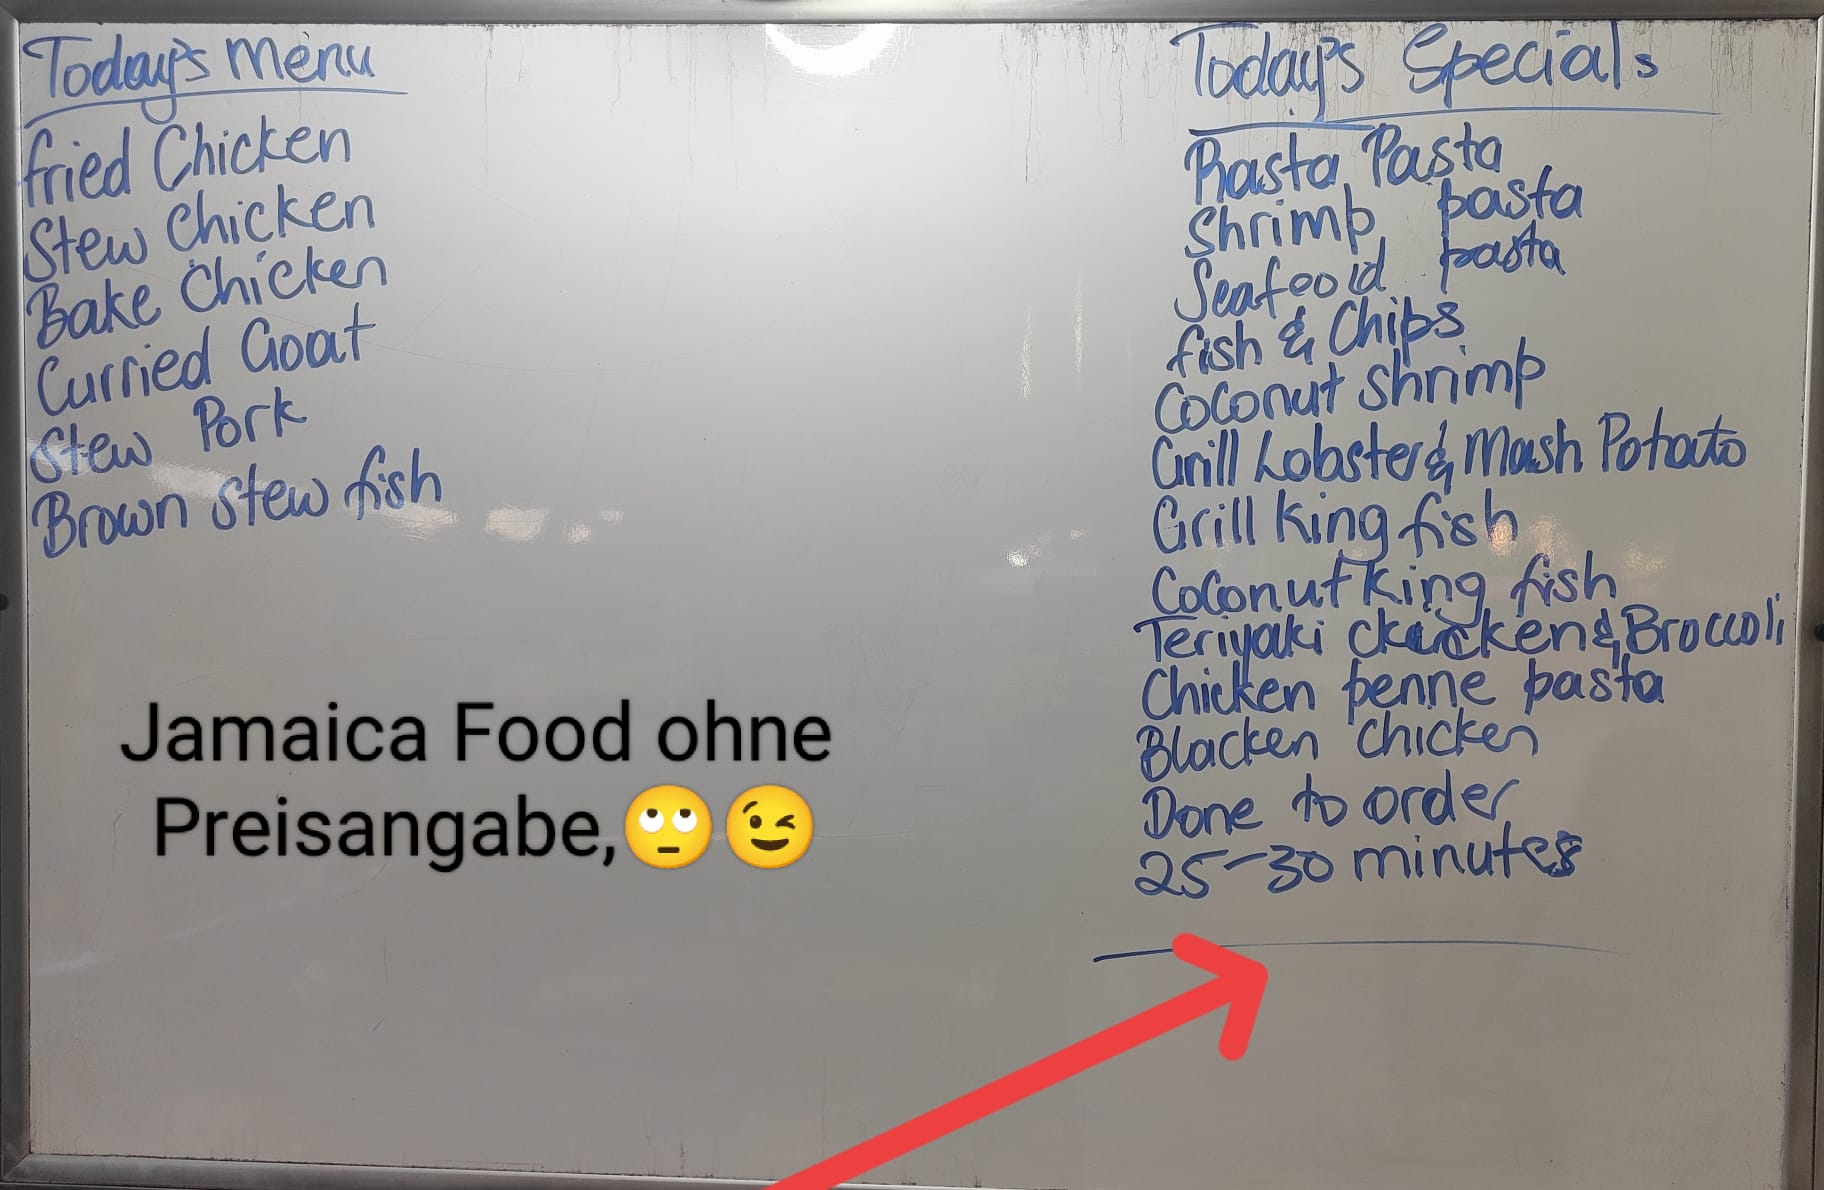 Today's Menu
fried Chicken
Stew Chicken
Bake Chicken
Curried Goat
Stew Pork
Brown Stew fish
Today's Specials
Rasta Pasta
Shrimp pasta
Seafoold pasta
fish & Chips
Coconut shrimp
Grill Lobster & Mash Potato
Grill King fish
Coconut King fish
Teriyaki chicken & Broccoli
Chicken penne pasta
Blacken chicken
Done to order
25-30 minutes
Jamaica Food ohne
Preisangabe,🙄😉